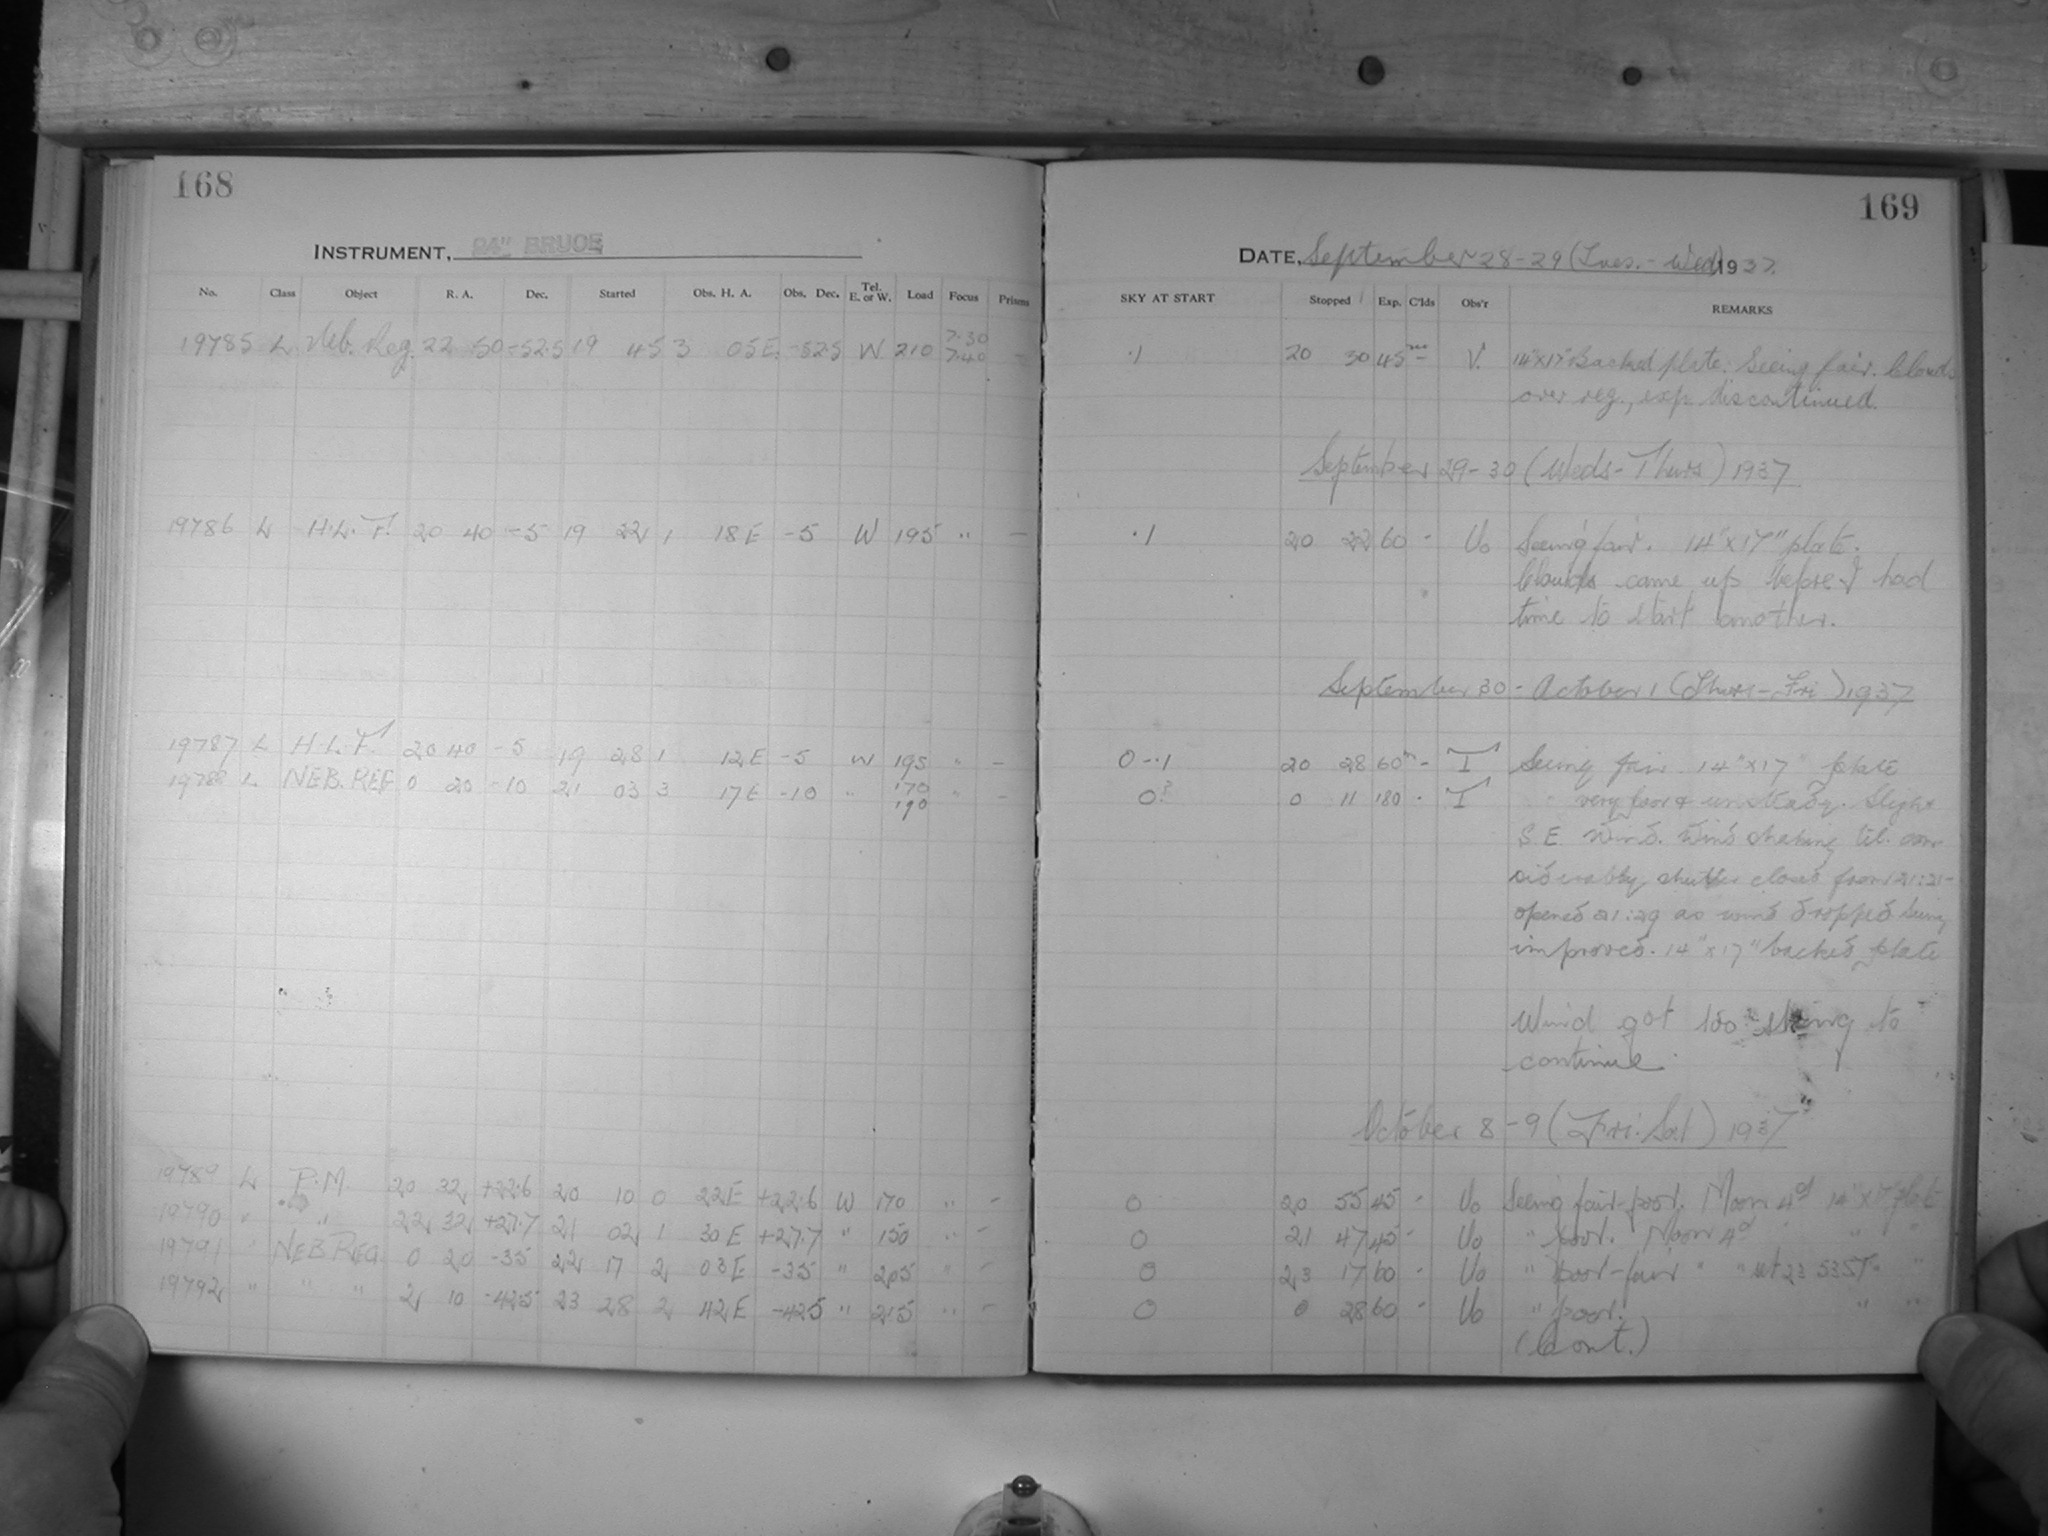 168
INSTRUMENT, 24" BRUCE
No. Class Object R. A. Dec. Started Obs. H. A. Obs. Dec. Tel. E. or W. Load Focus Prisms
19785 L Neb. Reg. 22 50 -52.5 19 45 3 05 E. -52.5 W 210 7.30 7.40 -
19786 L H.L.T. 20 40 -5 19 22 1 18 E -5 W 195 " -
19787 L H.L.T. 20 40 -5 19 28 1 12 E -5 W 195 " -
19788 L NEB. REG 0 20 -10 21 03 3 17 E -10 " 170 " -
190
19789 L P.M. 20 32 +22.6 20 10 0 22 E +22.6 W 170 " -
19790 " " 22 32 +27.7 21 02 1 30 E +27.7 " 150 " -
19791 " NEB REG. 0 20 -35 22 17 2 03 E -35 " 205 " -
19792 " " " 2 10 -42.5 23 28 2 42 E -42.5 " 215 " -
169
DATE, September 28-29 (Tues. - Wed) 1937.
SKY AT START Stopped Exp. C'lds Obs'r REMARKS
.1 20 30 45 - V. 14"x17" Backed plate. Seeing fair. Clouds
over reg., exp. discontinued.
September 29-30 (Weds-Thurs) 1937
.1 20 22 60 - Vo Seeing fair. 14"x17" plate.
Clouds came up before I had
time to start another.
September 30 - October 1 (Thurs-Fri) 1937
0-.1 20 28 60m - T Seeing fair 14"x17" plate
0? 0 11 180 - T " very poor & unsteady. Slight
S.E. wind. Wind shaking tel. con-
siderably, shutter closed from 21:21-
opened 21:29 as wind dropped seeing
improved. 14"x17" backed plate
Wind got too strong to
continue.
October 8-9 (Fri-Sat) 1937
0 20 55 45 - Vo Seeing fair-poor. Moon 4d 14"x17" plate
0 21 47 45 - Vo " poor. Moon 4d " "
0 23 17 60 - Vo " poor-fair " " set 23 53 ST " "
0 0 28 60 - Vo " poor. " "
(Cont.)